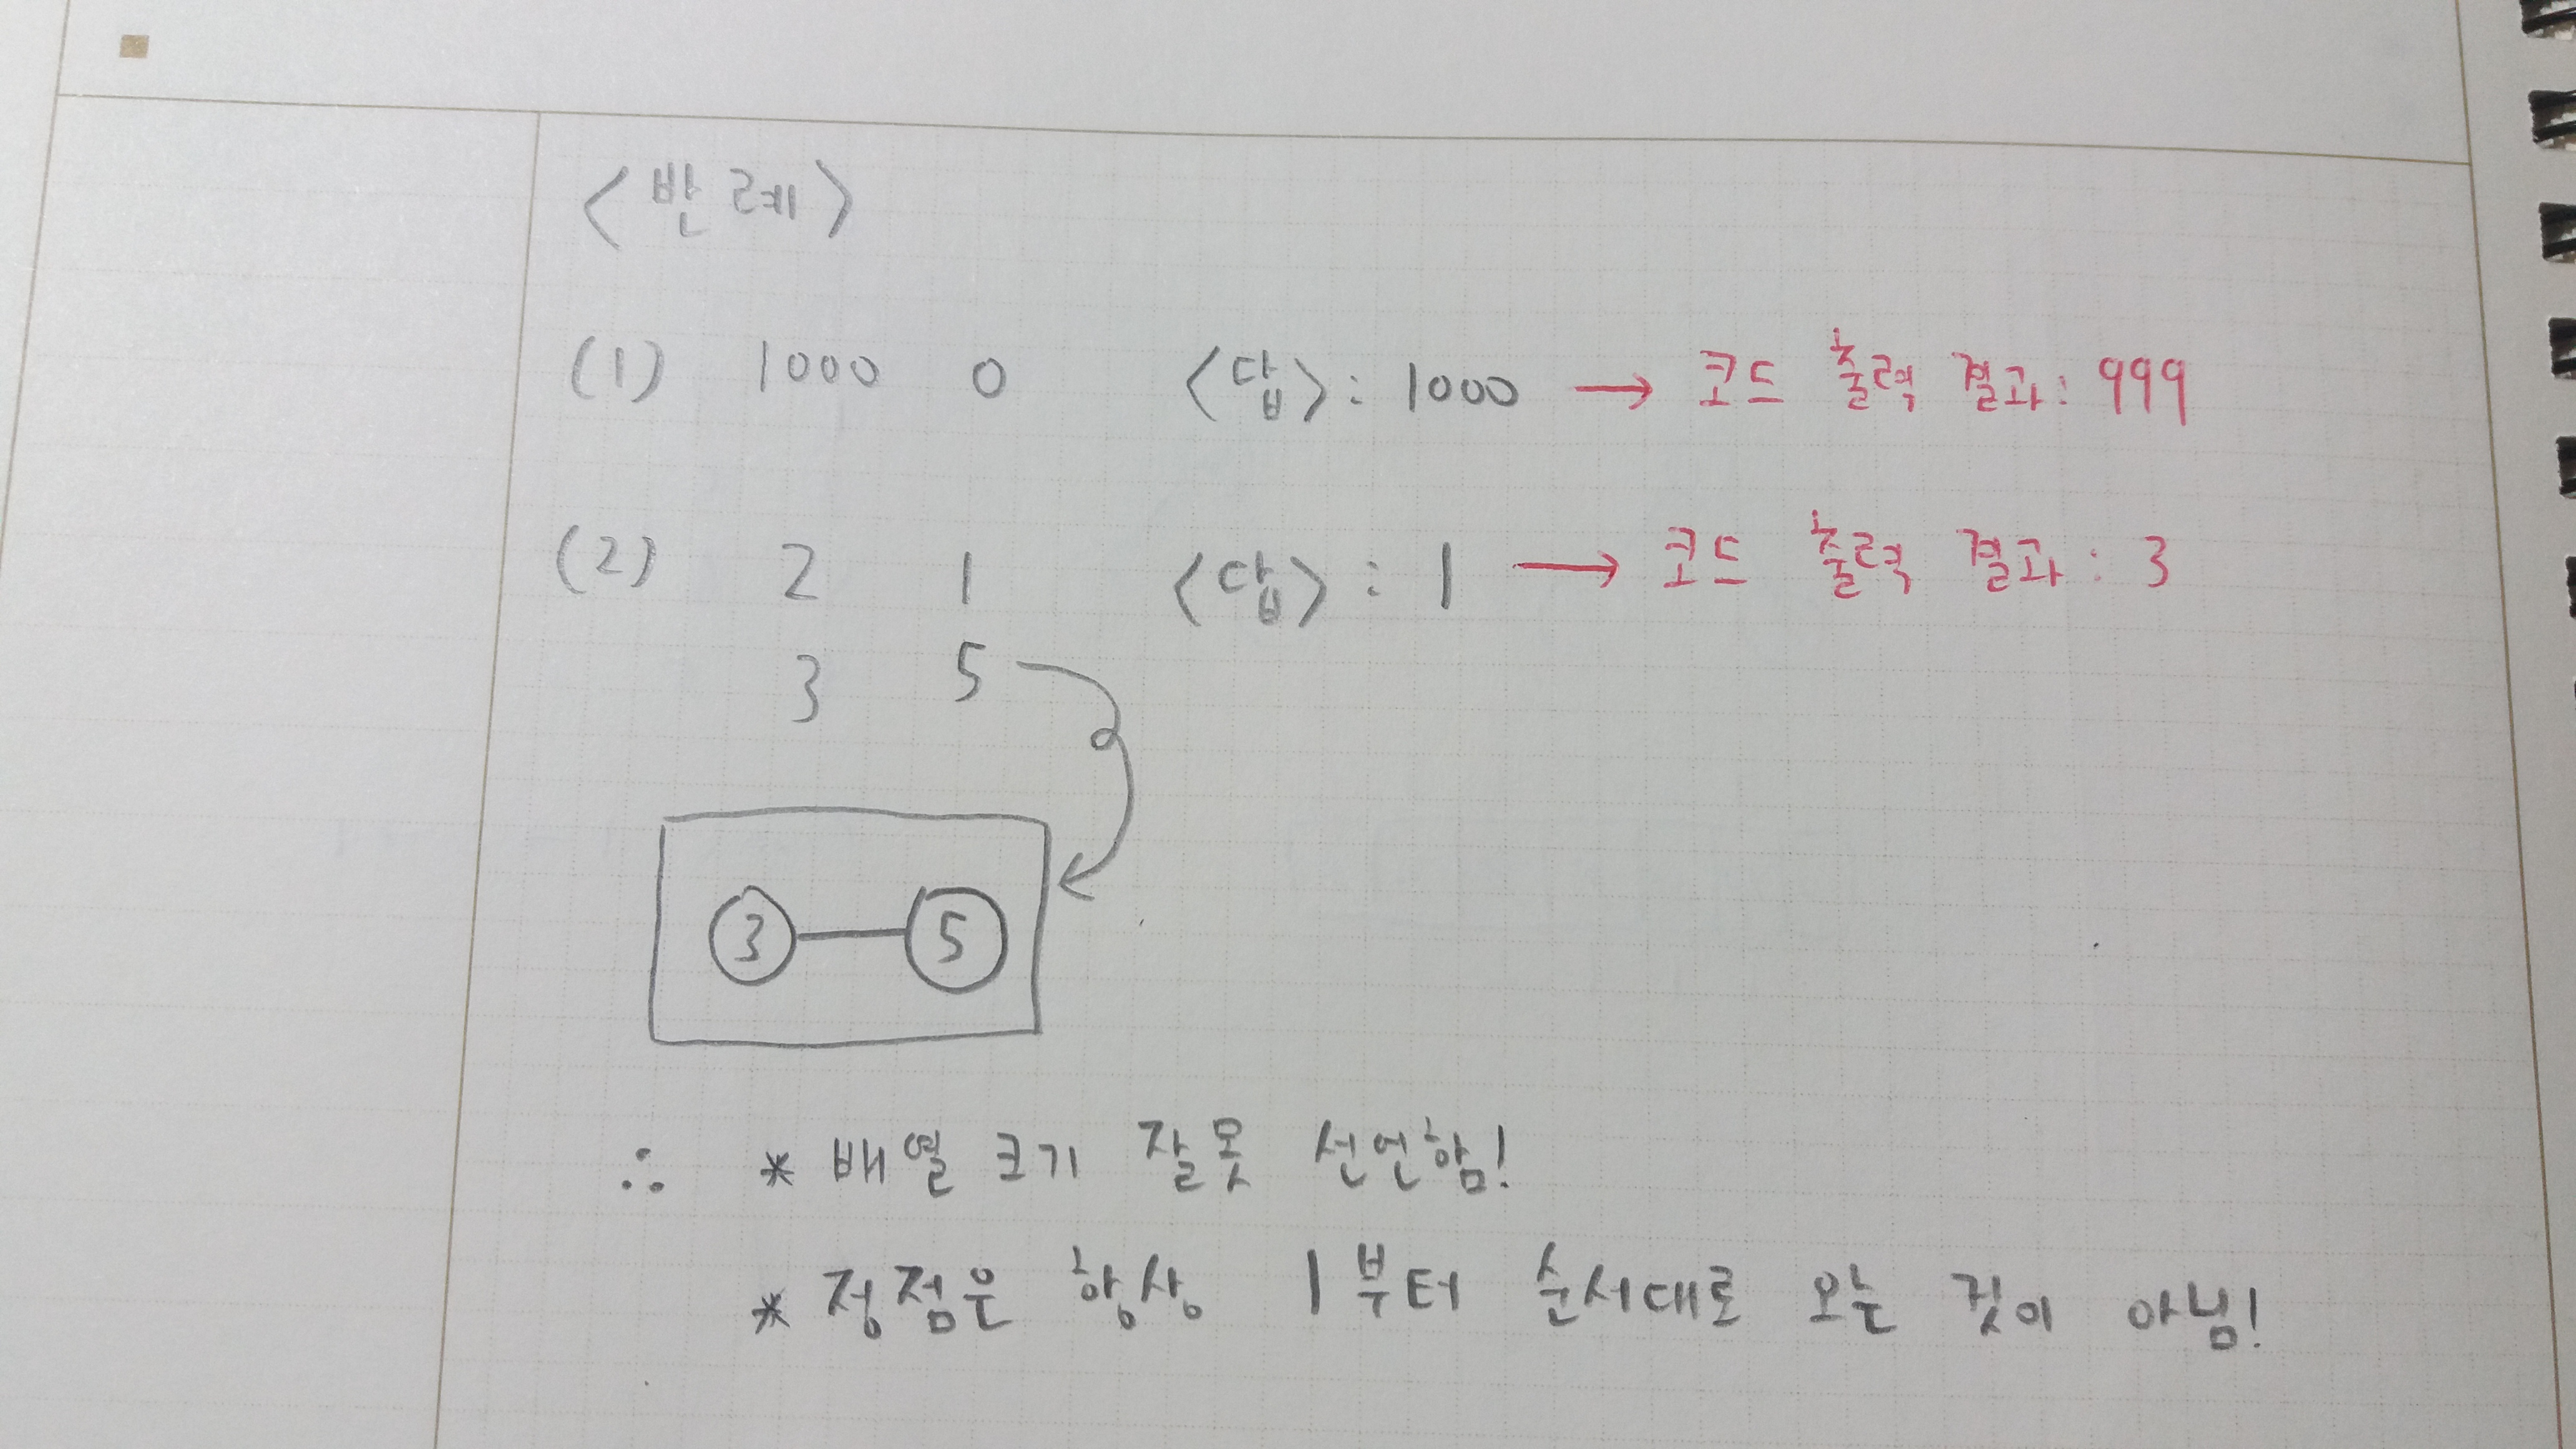 <반례>
(1) 1000 0 <답>: 1000 → 코드 출력 결과: 999
(2) 2 1 <답>: 1 → 코드 출력 결과: 3
3 5
3 5
∴ * 배열 크기 잘못 선언함!
* 정점은 항상 1부터 순서대로 오는 것이 아님!